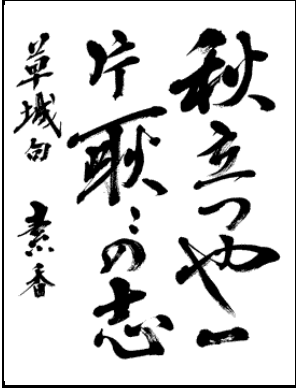 秋立つや一
片耿々の志
草城句 素香